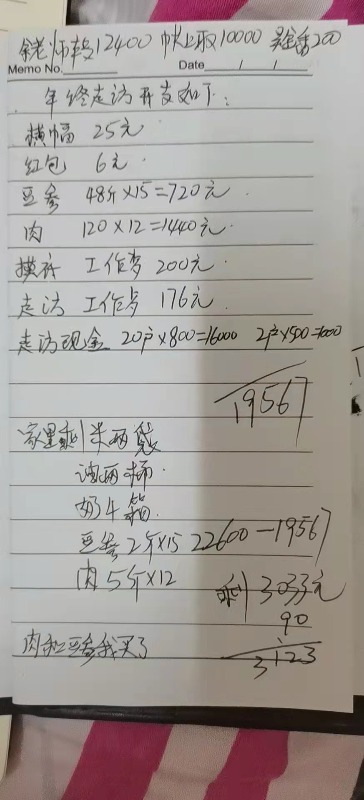 老师转12400 帐上取10000 200
Memo No. Date / /
年终走访开支如下:
横幅 25元
红包 6元.
豆参 48斤×15=720元
肉 120×12=1440元.
工作 200元.
走访 工作 176元.
走访现金 20户×800=16000 2户×500=1000
19567
家里剩米两袋
油两桶.
奶4箱.
豆参2斤×15 22600-19567
肉5斤×12 剩3033元
90
肉和豆参我买了 3123